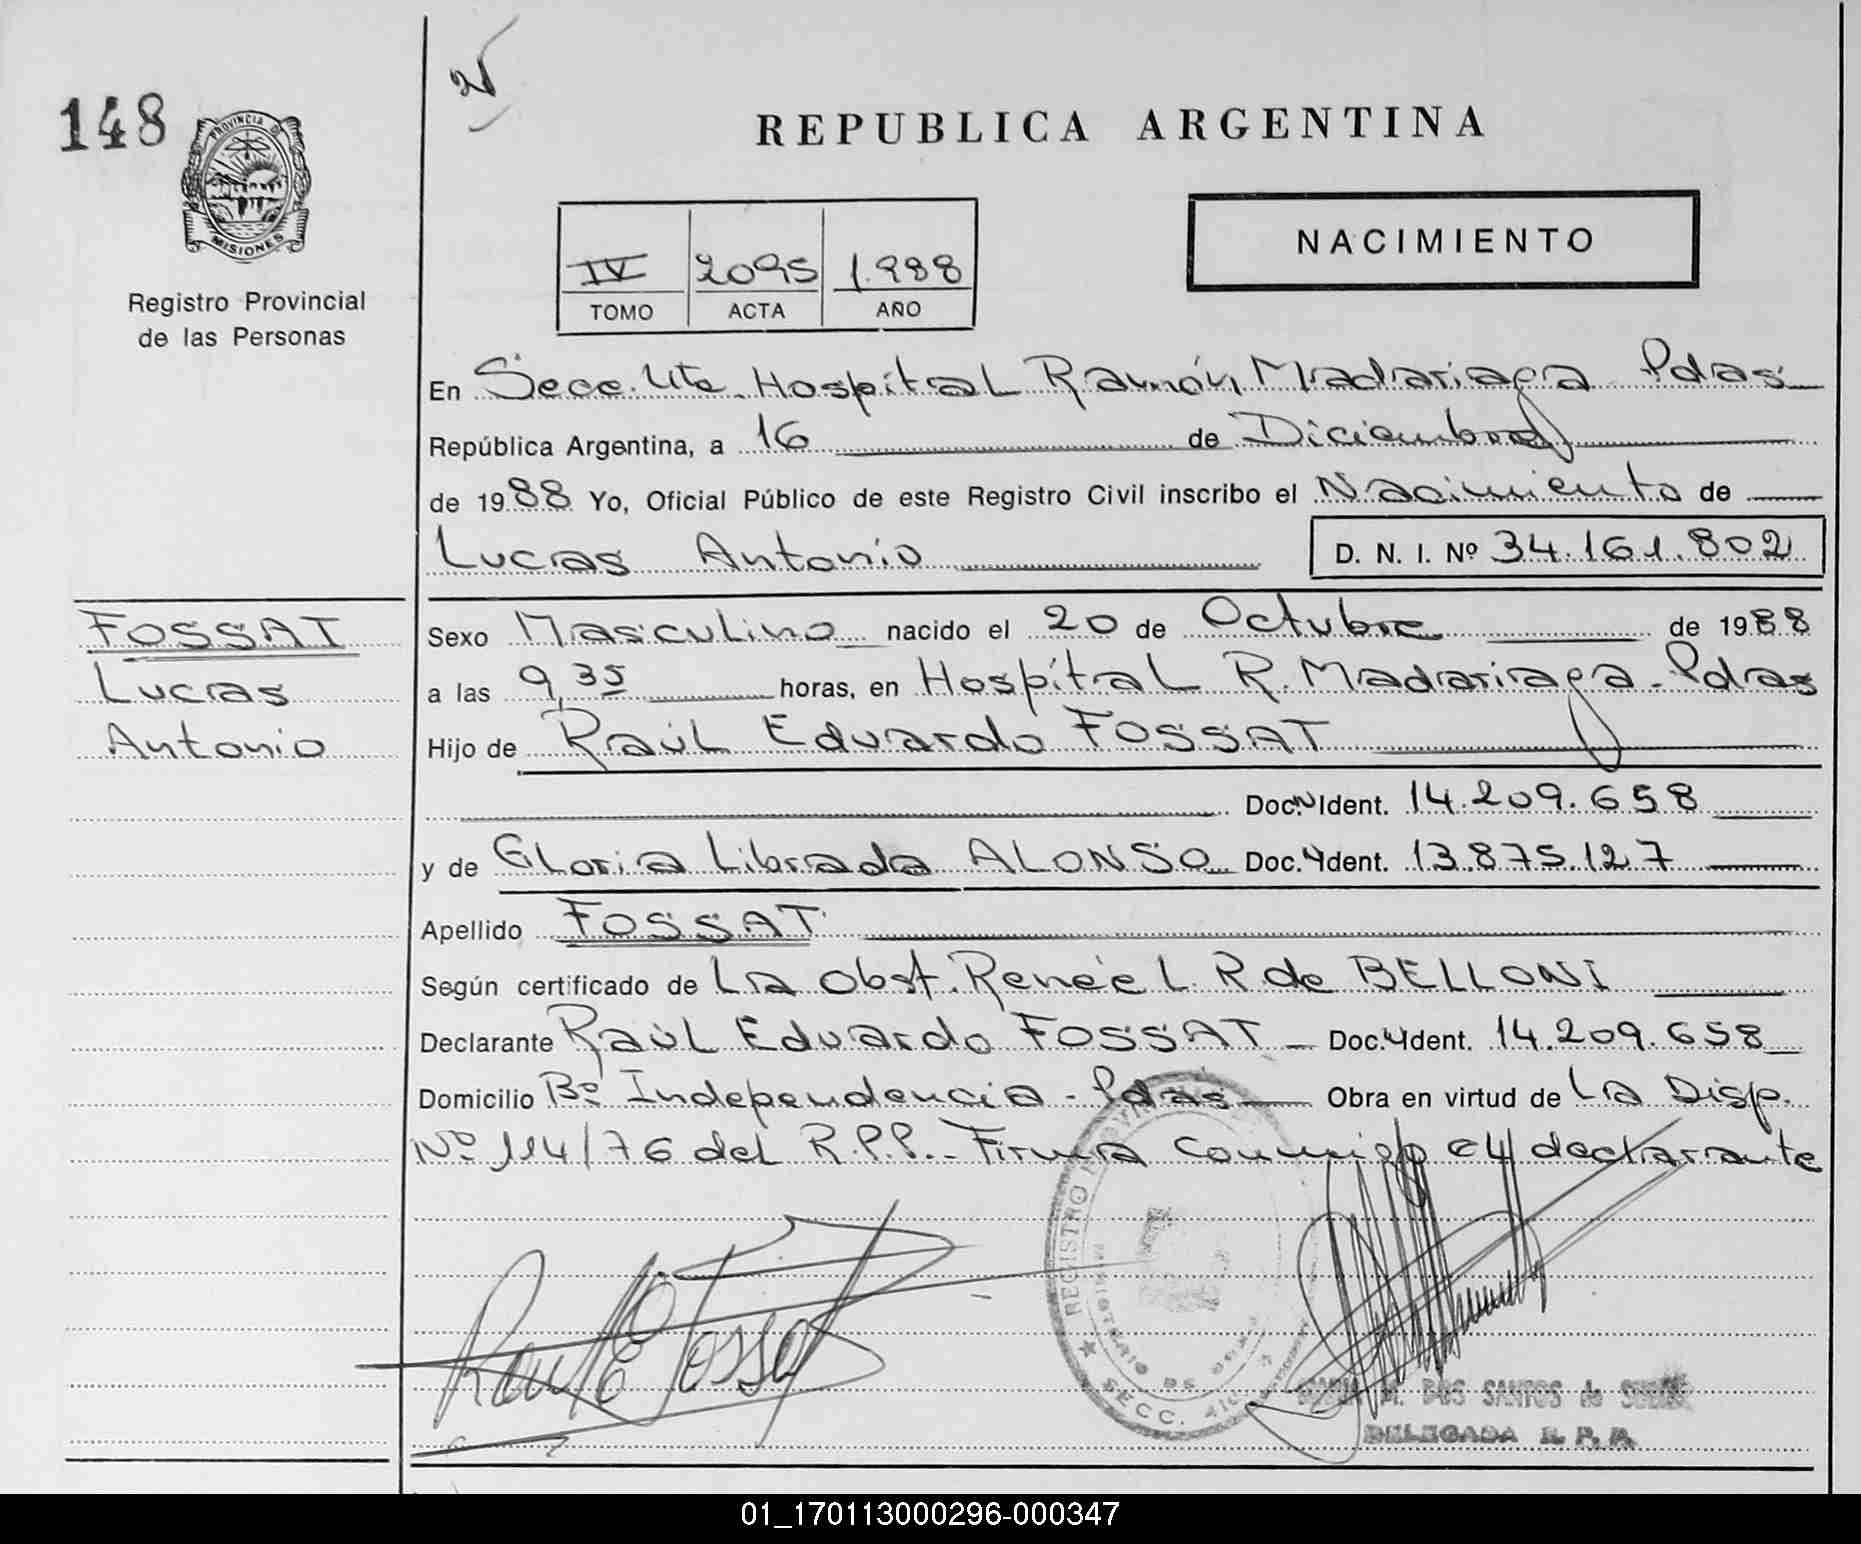 148
PROVINCIA DE
MISIONES
Registro Provincial
de las Personas
REPUBLICA ARGENTINA
NACIMIENTO
IV 2095 1.988
TOMO ACTA AÑO
En Secc. Hospital Ramón Madariaga Pdas
República Argentina, a 16 de Diciembre
de 1988 Yo, Oficial Público de este Registro Civil inscribo el Nacimiento de
Lucas Antonio D. N. I. Nº 34.161.802
FOSSAT
Lucas
Antonio
Sexo Masculino nacido el 20 de Octubre de 1988
a las 9,35 horas, en Hospital R. Madariaga - Pdas
Hijo de Raúl Eduardo FOSSAT
Doc. Ident. 14.209.658
y de Gloria Librada ALONSO Doc. Ident. 13.875.127
Apellido FOSSAT
Según certificado de La Obst. Renée L. R. de BELLONI
Declarante Raúl Eduardo FOSSAT - Doc. Ident. 14.209.658
Domicilio Bº Independencia - Pdas Obra en virtud de La Disp.
Nº 114/76 del R.P.P. - Firma conmigo el declarante
Raul E Fossat
REGISTRO
SECC.
M. DOS SANTOS de
DELEGADA R. P. P.
01_170113000296-000347